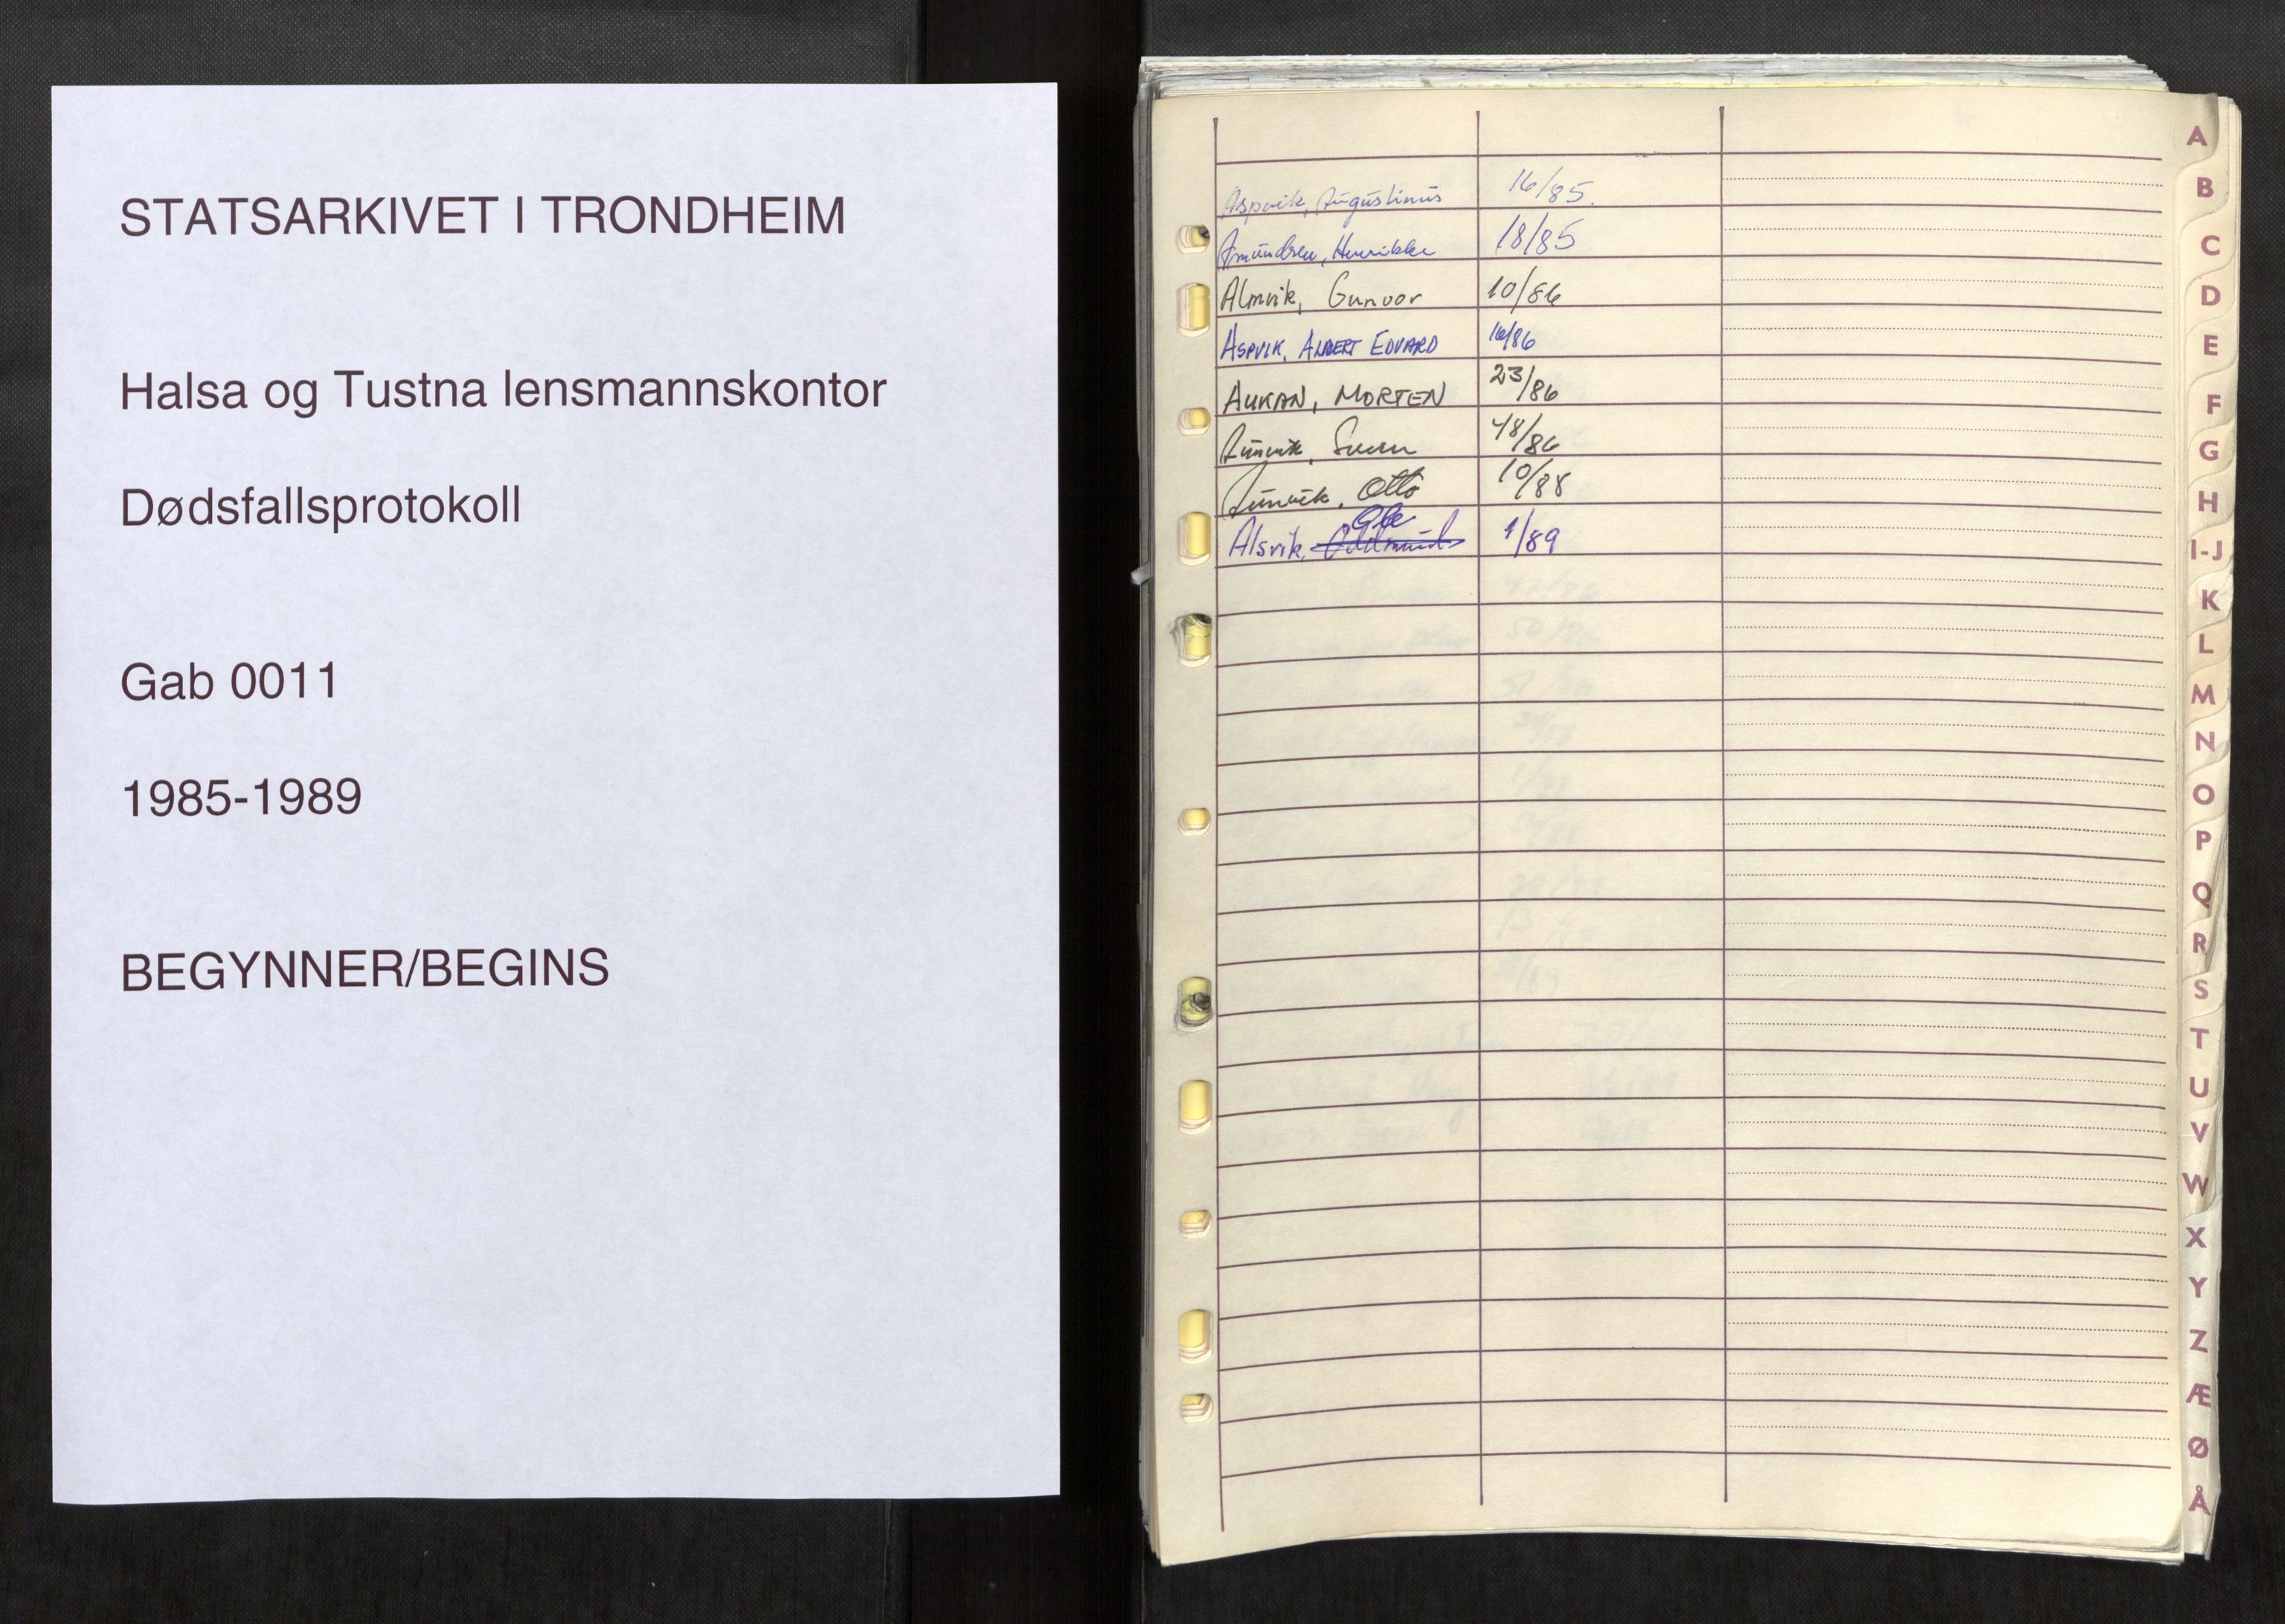 STATSARKIVET I TRONDHEIM
Halsa og Tustna lensmannskontor
Dødsfallsprotokoll
Gab 0011
1985-1989
BEGYNNER/BEGINS
Aspvik, Augustinus 16/85.
Amundsen, Henrikke 18/85
Almvik, Gunvor 10/86
ASPVIK, ALBERT EDVARD 16/86
AUKAN, MORTEN 23/86
48/86
Otto 10/88
Ole
Alsvik, Oddmund 1/89
A
B
C
D
E
F
G
H
I-J
K
L
M
N
O
P
Q
R
S
T
U
V
W
X
Y
Z
Æ
Ø
Å